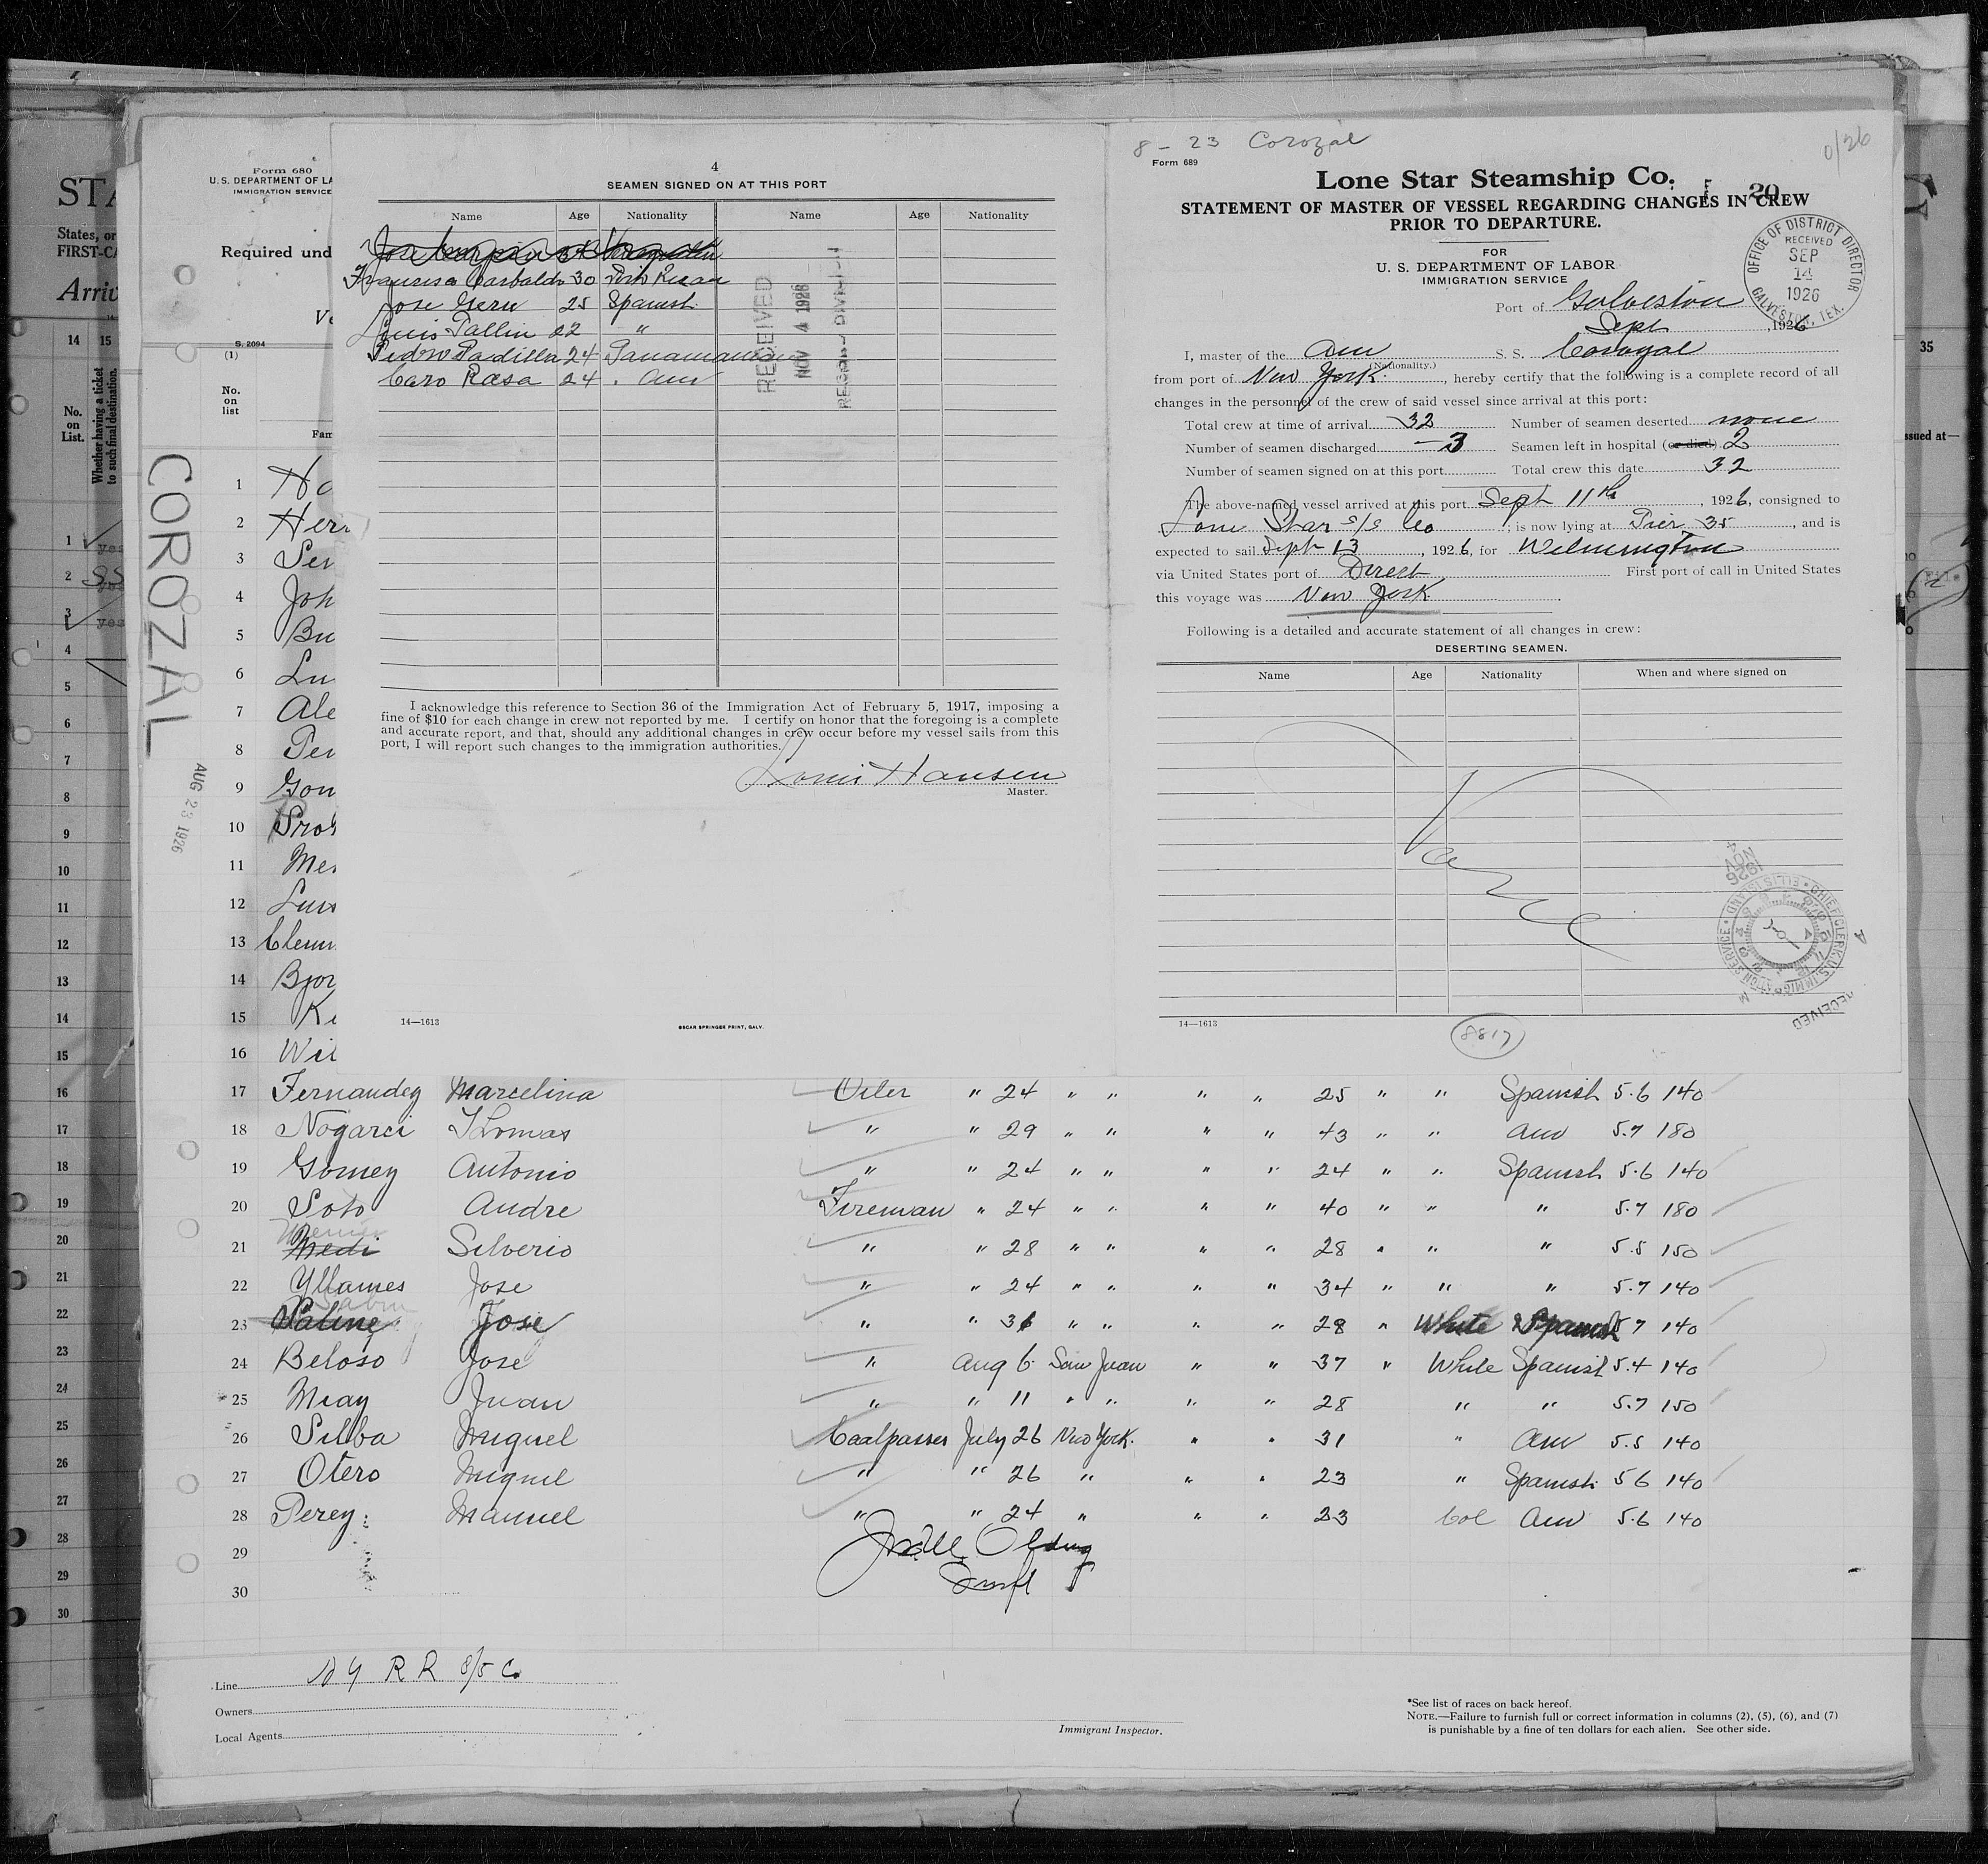 4
SEAMEN SIGNED ON AT THIS PORT
Name Age Nationality Name Age Nationality
30 Porto Rican
Jose 25 Spanish
Louis Pallin 22 "
Pedro Padilla 24 Panamanian
Caro Rosa 24 . Am
RECEIVED
NOV 4 1926
I acknowledge this reference to Section 36 of the Immigration Act of February 5, 1917, imposing a
fine of $10 for each change in crew not reported by me. I certify on honor that the foregoing is a complete
and accurate report, and that, should any additional changes in crew occur before my vessel sails from this
port, I will report such changes to the immigration authorities.
Louis Hansen
Master.
14—1613
OSCAR SPRINGER PRINT, GALV.
8 - 23 Corozal
Form 689
Lone Star Steamship Co.
20
STATEMENT OF MASTER OF VESSEL REGARDING CHANGES IN CREW
PRIOR TO DEPARTURE.
FOR
U. S. DEPARTMENT OF LABOR
IMMIGRATION SERVICE
OFFICE OF DISTRICT DIRECTOR
RECEIVED
SEP
14
1926
GALVESTON, TEX.
Port of Galveston
Sept , 1926
I, master of the Am S. S. Corozal
(Nationality.)
from port of New York , hereby certify that the following is a complete record of all
changes in the personnel of the crew of said vessel since arrival at this port:
Total crew at time of arrival 32 Number of seamen deserted none
Number of seamen discharged 3 Seamen left in hospital (or died) 2
Number of seamen signed on at this port Total crew this date 32
The above-named vessel arrived at this port Sept 11th , 1926, consigned to
Lone Star S/S Co ; is now lying at Pier 35 , and is
expected to sail Sept 13 , 1926, for Wilmington
via United States port of Direct First port of call in United States
this voyage was New York
Following is a detailed and accurate statement of all changes in crew:
DESERTING SEAMEN.
Name Age Nationality When and where signed on
None
14—1613
8817
Form 680
U. S. DEPARTMENT OF LA
IMMIGRATION SERVICE
Required und
Ve
S. 2094
(1)
No.
on
list
Fam
COROZAL
AUG 23 1926
1 Ho
2 Herr
3 Ser
4 Joh
5 Bu
6 Lu
7 Ale
8 Per
9 Gon
10 Pros
11 Mer
12 Luis
13 Clem
14 Bjor
15 Ke
16 Wil
17 Fernandez Marcelina Oiler " 24 " " " " 25 " " Spanish 5.6 140
18 Nogarci Thomas " " 29 " " " " 43 " " Am 5.7 180
19 Gomez Antonio " " 24 " " " " 24 " " Spanish 5.6 140
20 Soto Andre Fireman " 24 " " " " 40 " " " 5.7 180
21 Medi Silverio " " 28 " " " " 28 " " " 5.5 150
22 Yllames Jose " " 24 " " " " 34 " " " 5.7 140
23 Saline Jose " " 31 " " " " 28 " White Spanish 5.7 140
24 Beloso Jose " Aug 6 San Juan " " 37 " White Spanish 5.4 140
25 Miay Juan " " 11 " " " " 28 " " 5.7 150
26 Silba Miguel Coalpasser July 26 New York " " 31 " Am 5.5 140
27 Otero Miguel " " 26 " " " 23 " Spanish 5 6 140
28 Perez Manuel " " 24 " " " 23 Col Am 5.6 140
29
30
Line NY & R R S/S Co
Owners
Local Agents
Immigrant Inspector.
*See list of races on back hereof.
NOTE.—Failure to furnish full or correct information in columns (2), (5), (6), and (7)
is punishable by a fine of ten dollars for each alien. See other side.
STA
States, or
FIRST-CA
Arriv
14 15
No.
on
List.
Whether having a ticket
to such final destination.
35
ssued at—